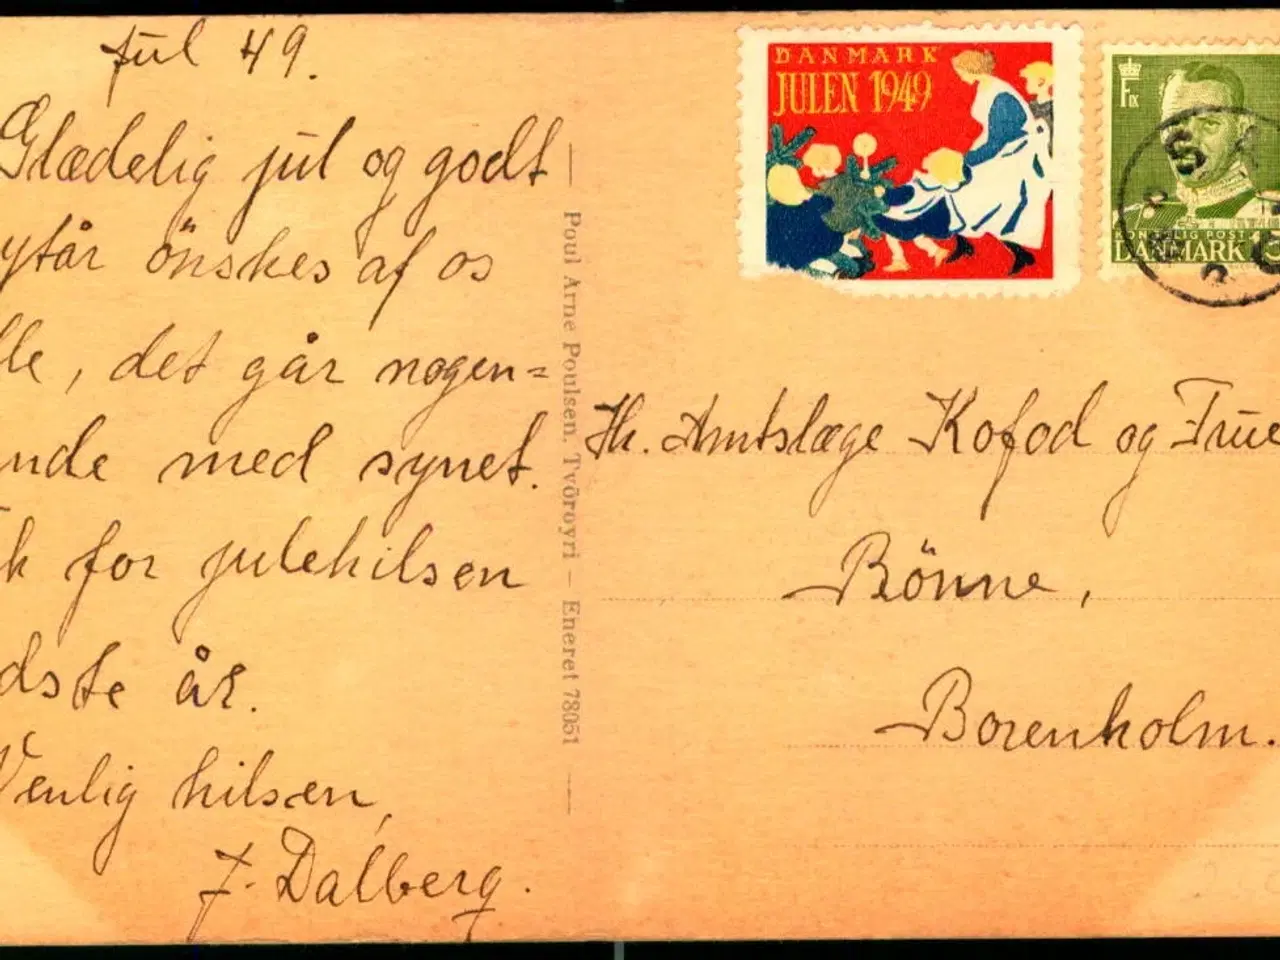 Jul 49.
Glædelig jul og godt
ytår önskes af os
lle, det går nogen=
nde med synet.
k for julehilsen
dste år.
Venlig hilsen,
J. Dalberg.
— Poul Arne Poulsen, Tvöroyri — Eneret 78051 —
DANMARK
JULEN 1949
F IX
KONGELIG POST
DANMARK 15
Hr. Amtslæge Kofod og Frue
Rönne,
Borenholm.